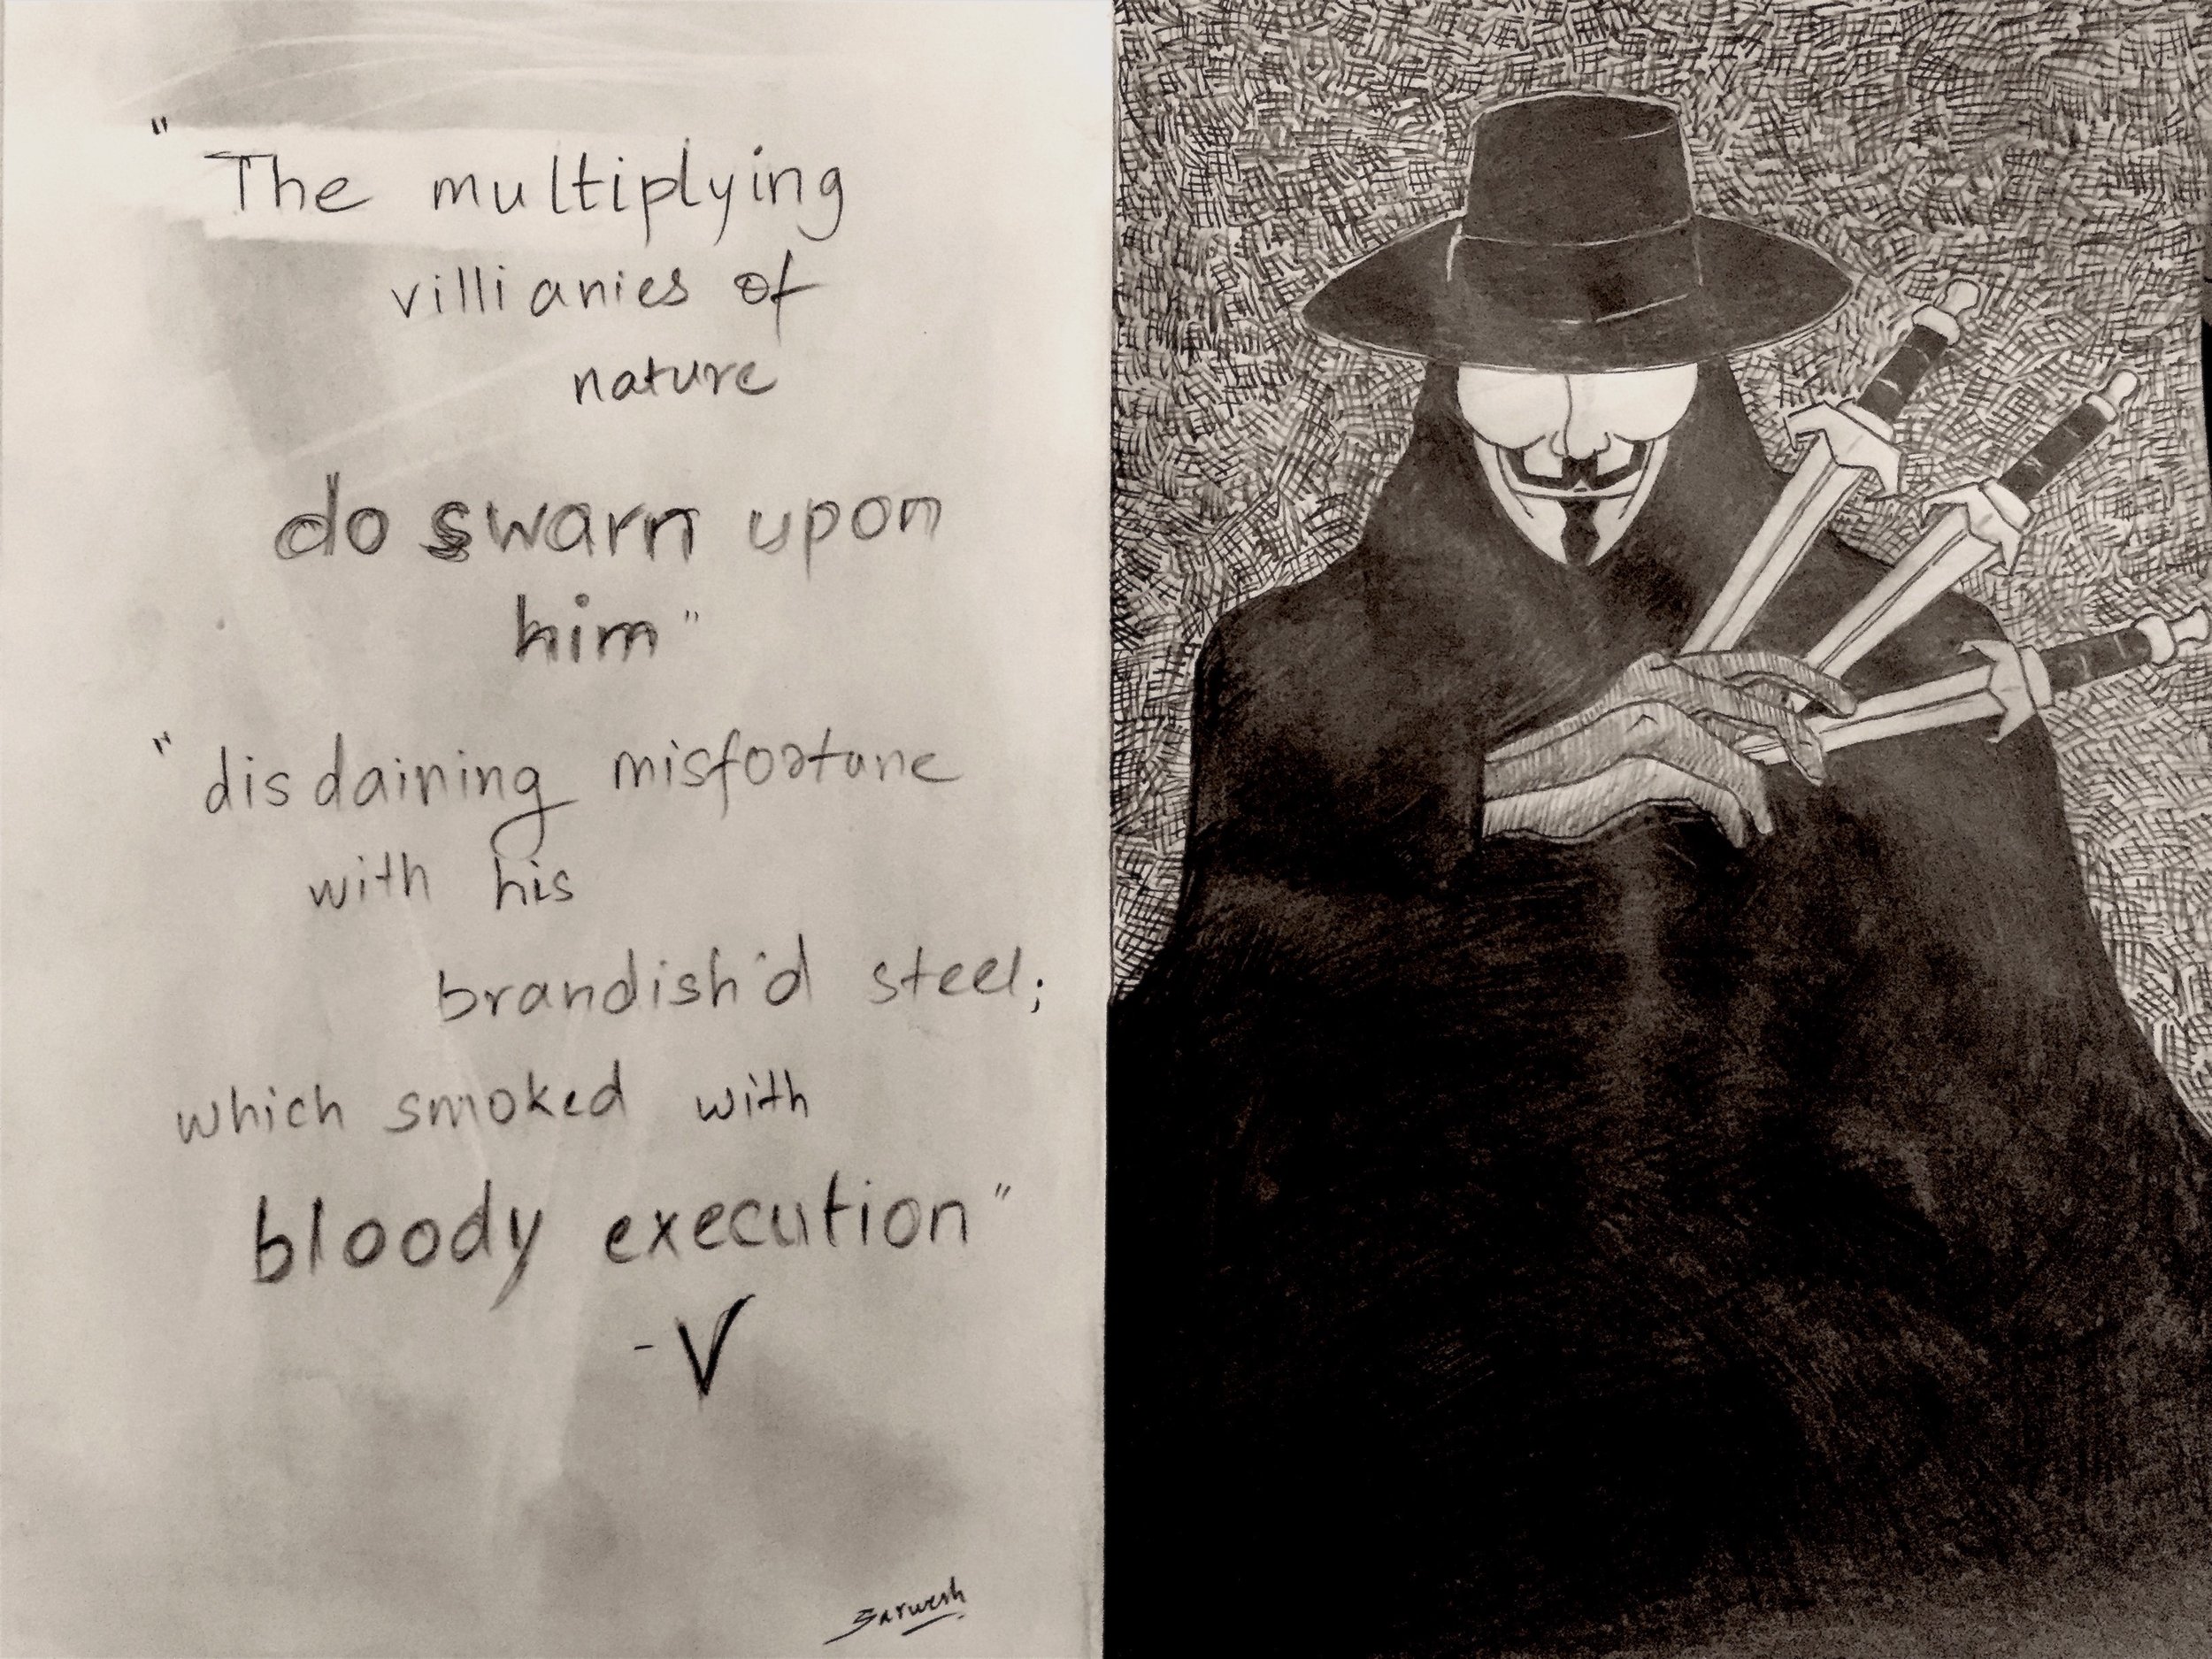 "The multiplying
villianies of
nature
do swarn upon
him"
"disdaining misfortune
with his
brandish'd steel;
which smoked with
bloody execution"
-V
Sarwesh